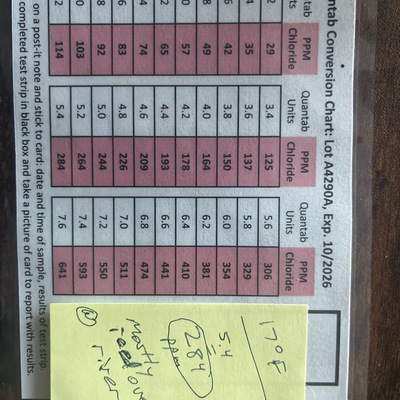 ntab Conversion Chart: Lot A4290A, Exp. 10/2026
tab PPM Quantab PPM Quantab PPM
s Chloride Units Chloride Units Chloride
2 29 3.4 125 5.6 306
4 35 3.6 137 5.8 329
6 42 3.8 150 6.0 354
8 49 4.0 164 6.2 381
0 57 4.2 178 6.4 410
2 65 4.4 193 6.6 441
4 74 4.6 209 6.8 474
6 83 4.8 226 7.0 511
8 92 5.0 244 7.2 550
0 103 5.2 264 7.4 593
2 114 5.4 284 7.6 641
on a post-it note and stick to card: date and time of sample, results of test strip.
completed test strip in black box and take a picture of card to report with results.
17°F
5.4
284
ppm
mostly
iced ove
river